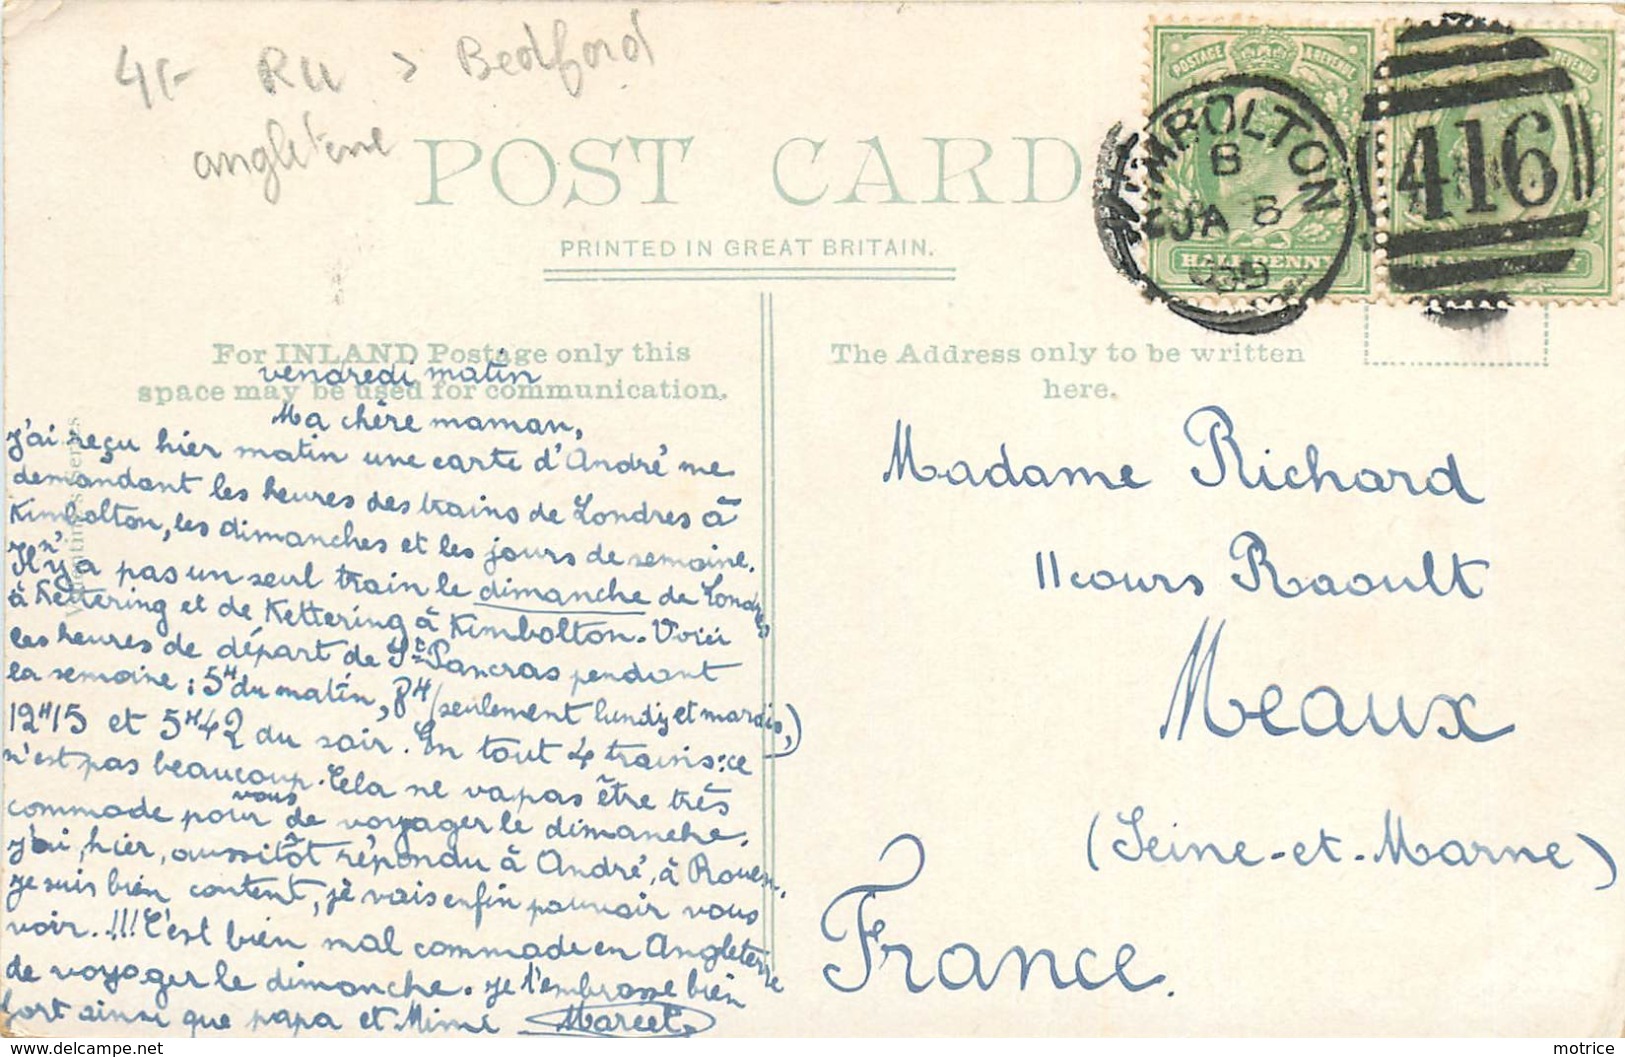 4,- RU > Bedford
angleterre
POST CARD
PRINTED IN GREAT BRITAIN.
POSTAGE & REVENUE
HALFPENNY
KIMBOLTON
B
JA 8
09
416
REVENUE
For INLAND Postage only this
space may be used for communication.
The Address only to be written
here.
Valentine's Series
vendredi matin
Ma chère maman,
J'ai reçu hier matin une carte d'André me
demandant les heures des trains de Londres à
Kimbolton, les dimanches et les jours de semaine.
Il n'y a pas un seul train le dimanche de Londres
à Kettering et de Kettering à Kimbolton. Voici
les heures de départ de St Pancras pendant
la semaine : 5H du matin, 8H (seulement lundis et mardis,)
12H15 et 5H42 du soir. En tout 4 trains : ce
n'est pas beaucoup. Cela ne va pas être très
commode pour vous de voyager le dimanche.
J'ai, hier, aussitôt répondu à André, à Rouen.
Je suis bien content, je vais enfin pouvoir vous
voir..!!! C'est bien mal commode en Angleterre
de voyager le dimanche. Je t'embrasse bien
fort ainsi que papa et Mimi Marcel
Madame Richard
11 cours Raoult
Meaux
(Seine-et-Marne)
France.
motrice